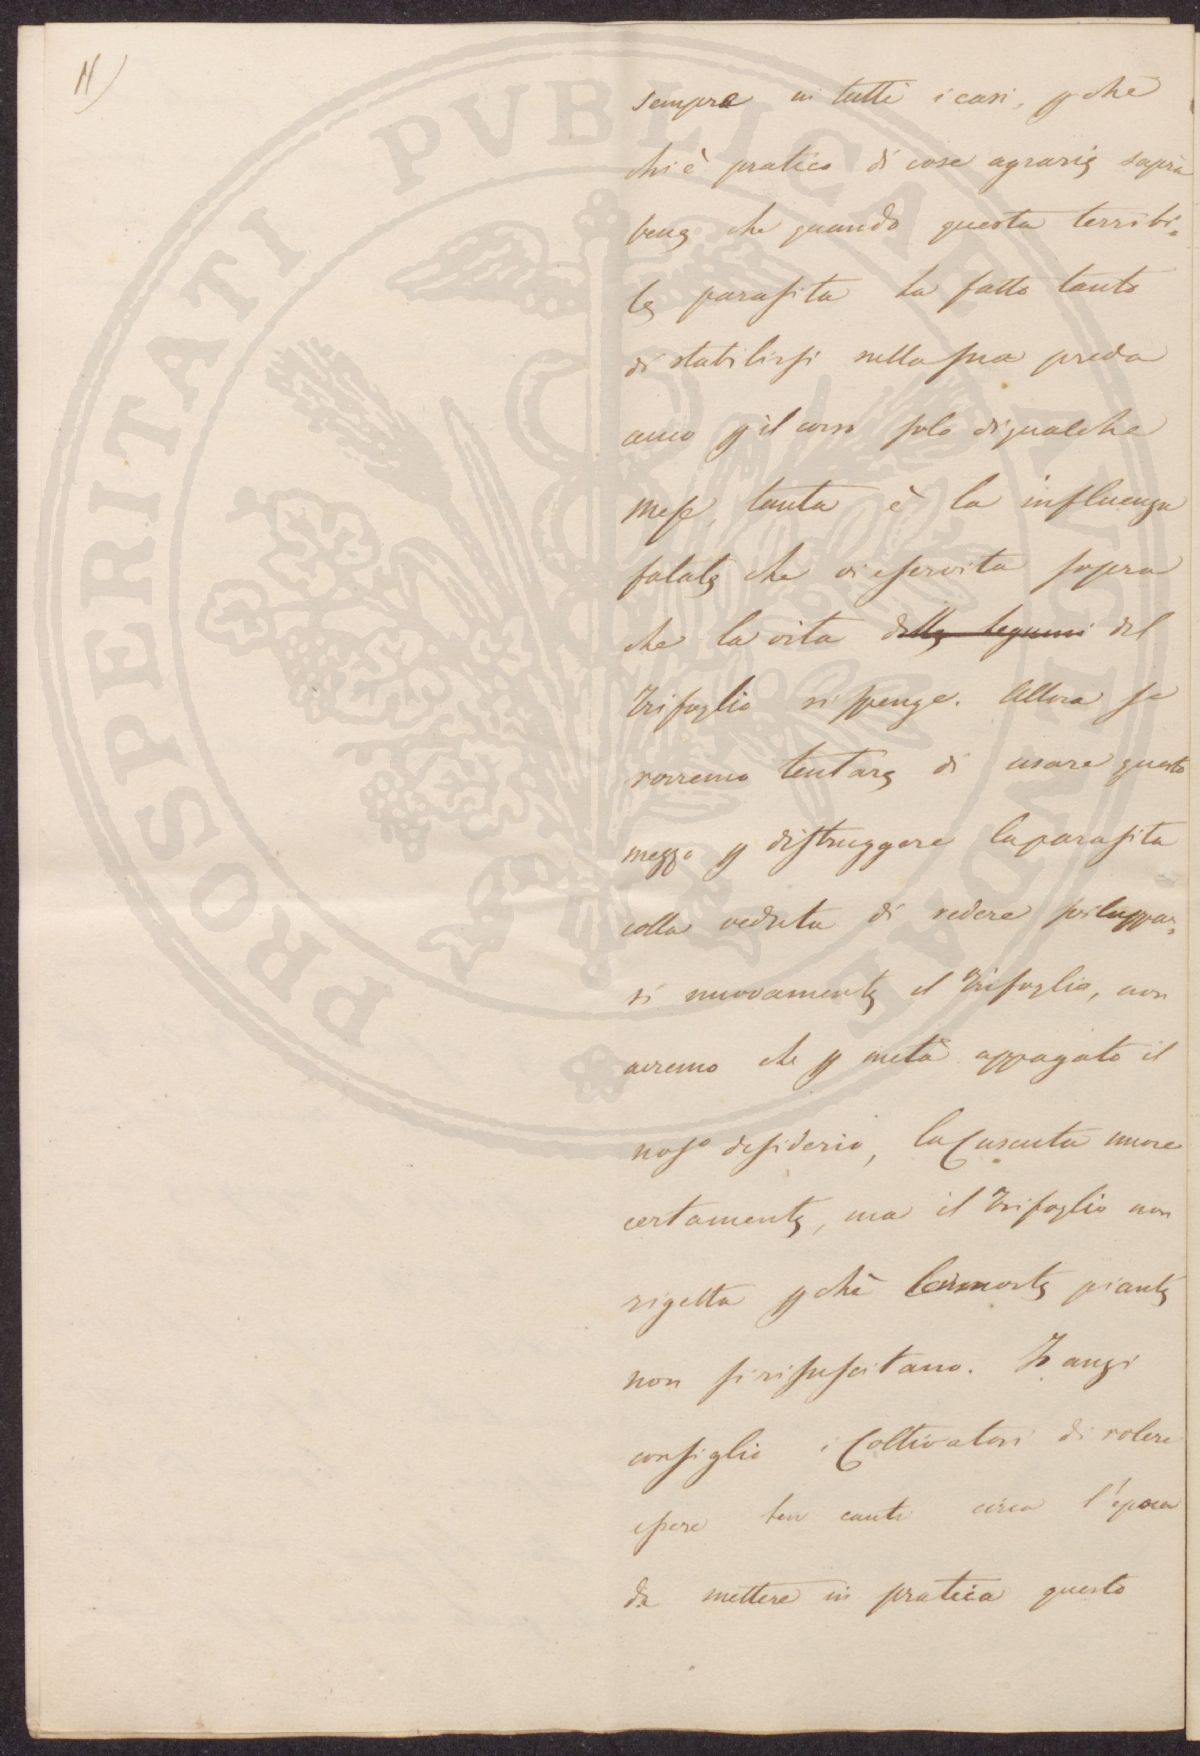 11)
sempre in tutti i casi, pchè
chi è pratico di cose agrarie saprà
bene che quando questa terribi=
le parasita ha fatto tanto
di stabilirsi nella sua preda
anco p il corso solo di qualche
mese, tanta è la influenza
fatale che vi esercita sopra
che la vita delle legumi del
Trifoglio si spenge. Allora se
vorremo tentare di usare questo
mezzo p distruggere la parasita
colla veduta di vedere sviluppar=
si nuovamente il Trifoglio, non
avremo che p metà appagato il
nosº desiderio, la Cuscuta muore
certamente, ma il Trifoglio non
rigetta pchè le morte piante
non si risuscitano. Io anzi
consiglio i Coltivatori di volere
essere ben cauti circa l'epoca
da mettere in pratica questo
PROSPERITATI PVBLICAE AVGENDAE